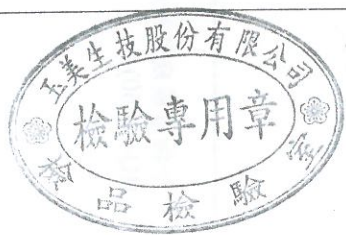 玉美生技股份有限公司
檢驗專用章
品檢驗室